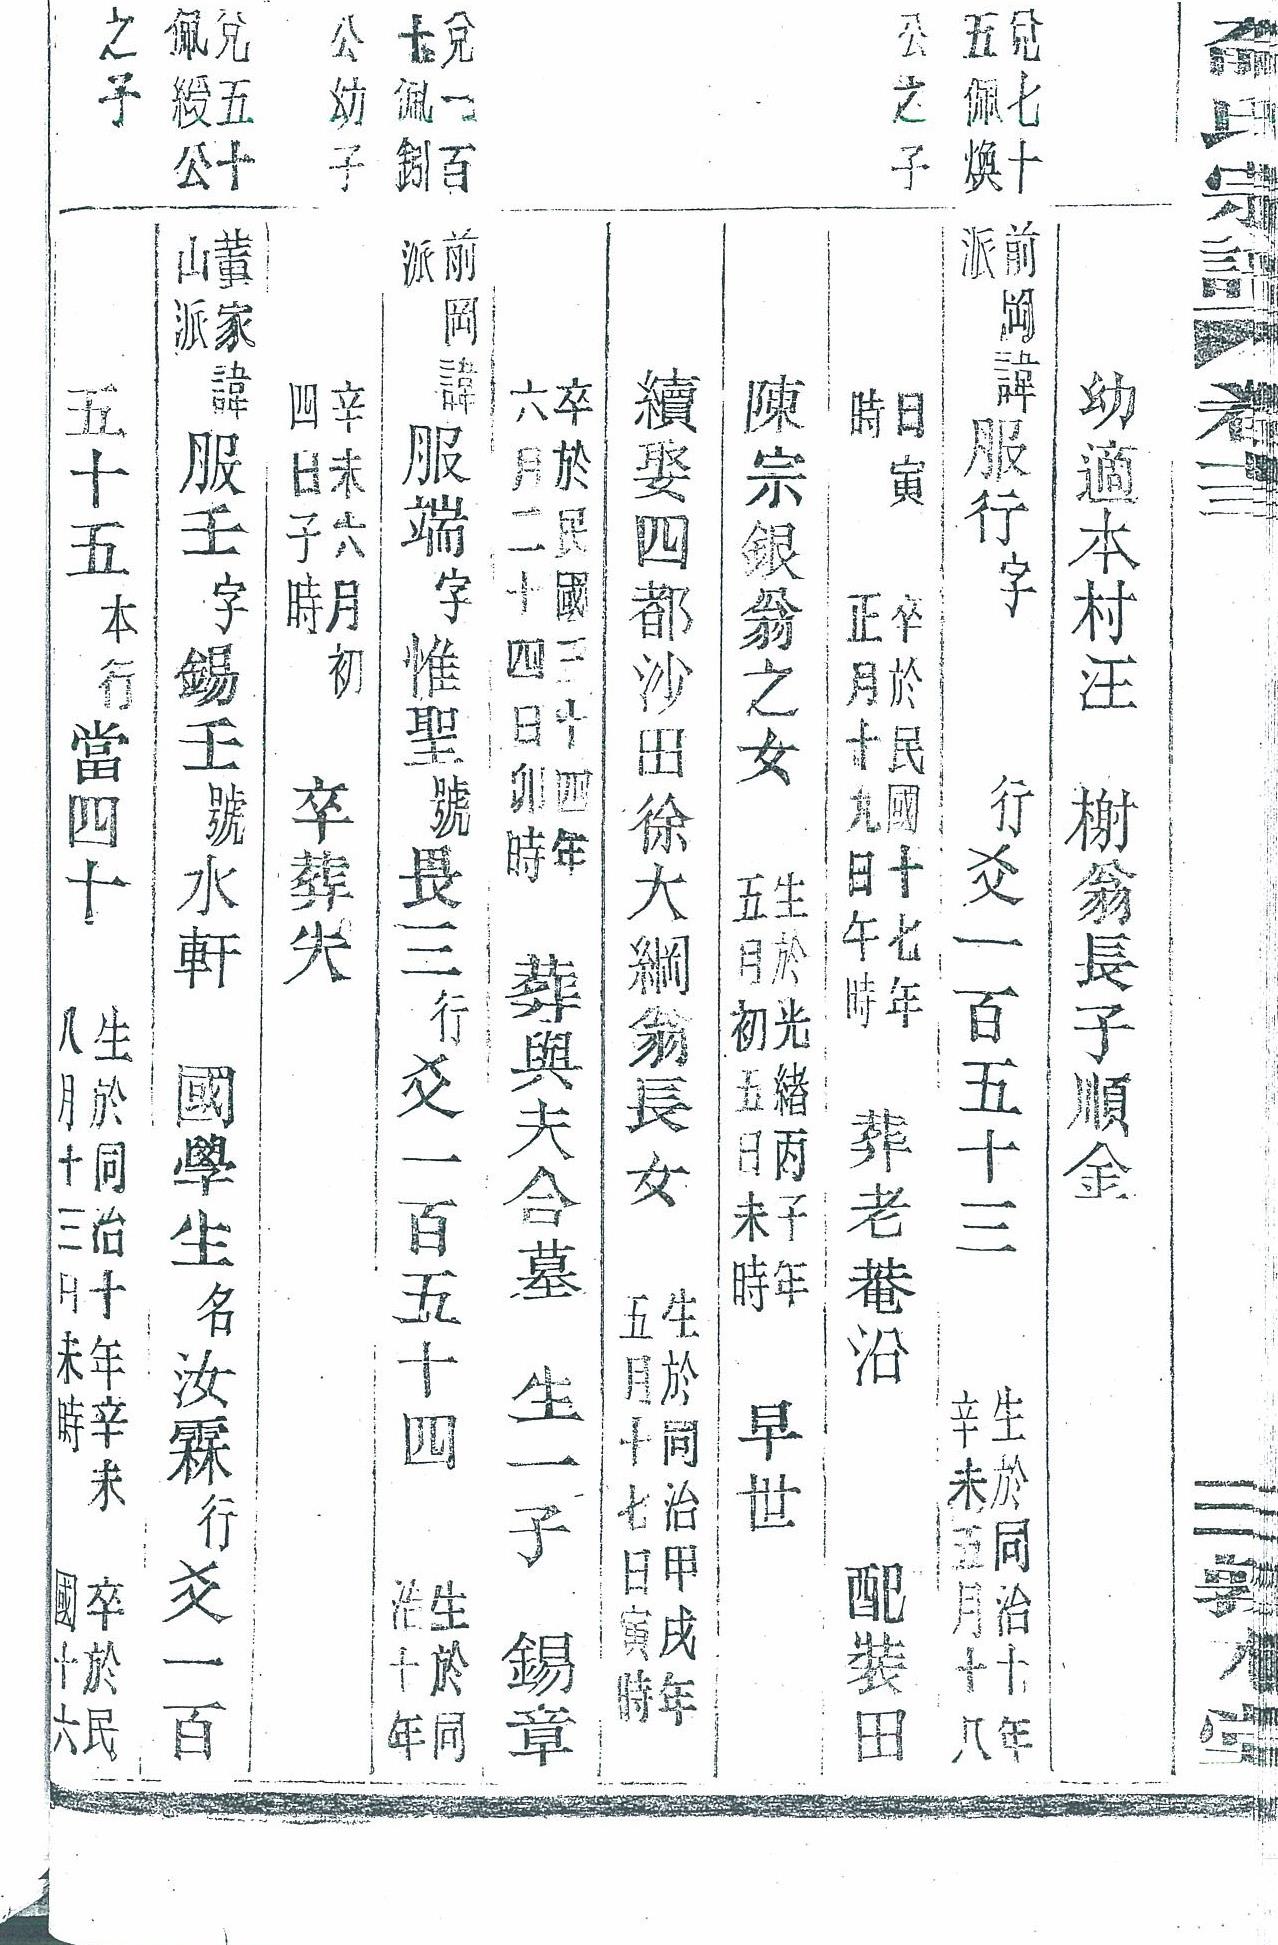 氏宗譜 卷三
幼適本村汪 榭翁長子順金
兌七十五佩煥 前岡派 諱服行字 行爻一百五十三 生於同治十年辛未五月十八
公之子 日寅時 卒於民國十七年正月十九日午時 葬老菴沿 配裝田
陳宗銀翁之女 生於光緒丙子年五月初五日未時 早世
續娶四都沙出徐大綱翁長女 生於同治甲戌年五月十七日寅時
卒於民國三十四年六月二十四日卯時 葬與夫合墓 生一子 錫章
兌一百十佩釗 前岡派 諱服端字惟聖號畏三行爻一百五十四 生於同治十年
公幼子 辛未六月初四日子時 卒葬失
兌五十佩綬公 董家山派 諱服壬字錫壬號水軒 國學生名汝霖行爻一百
之子 五十五本行當四十 生於同治十年辛未八月十三日未時 卒於民國十六